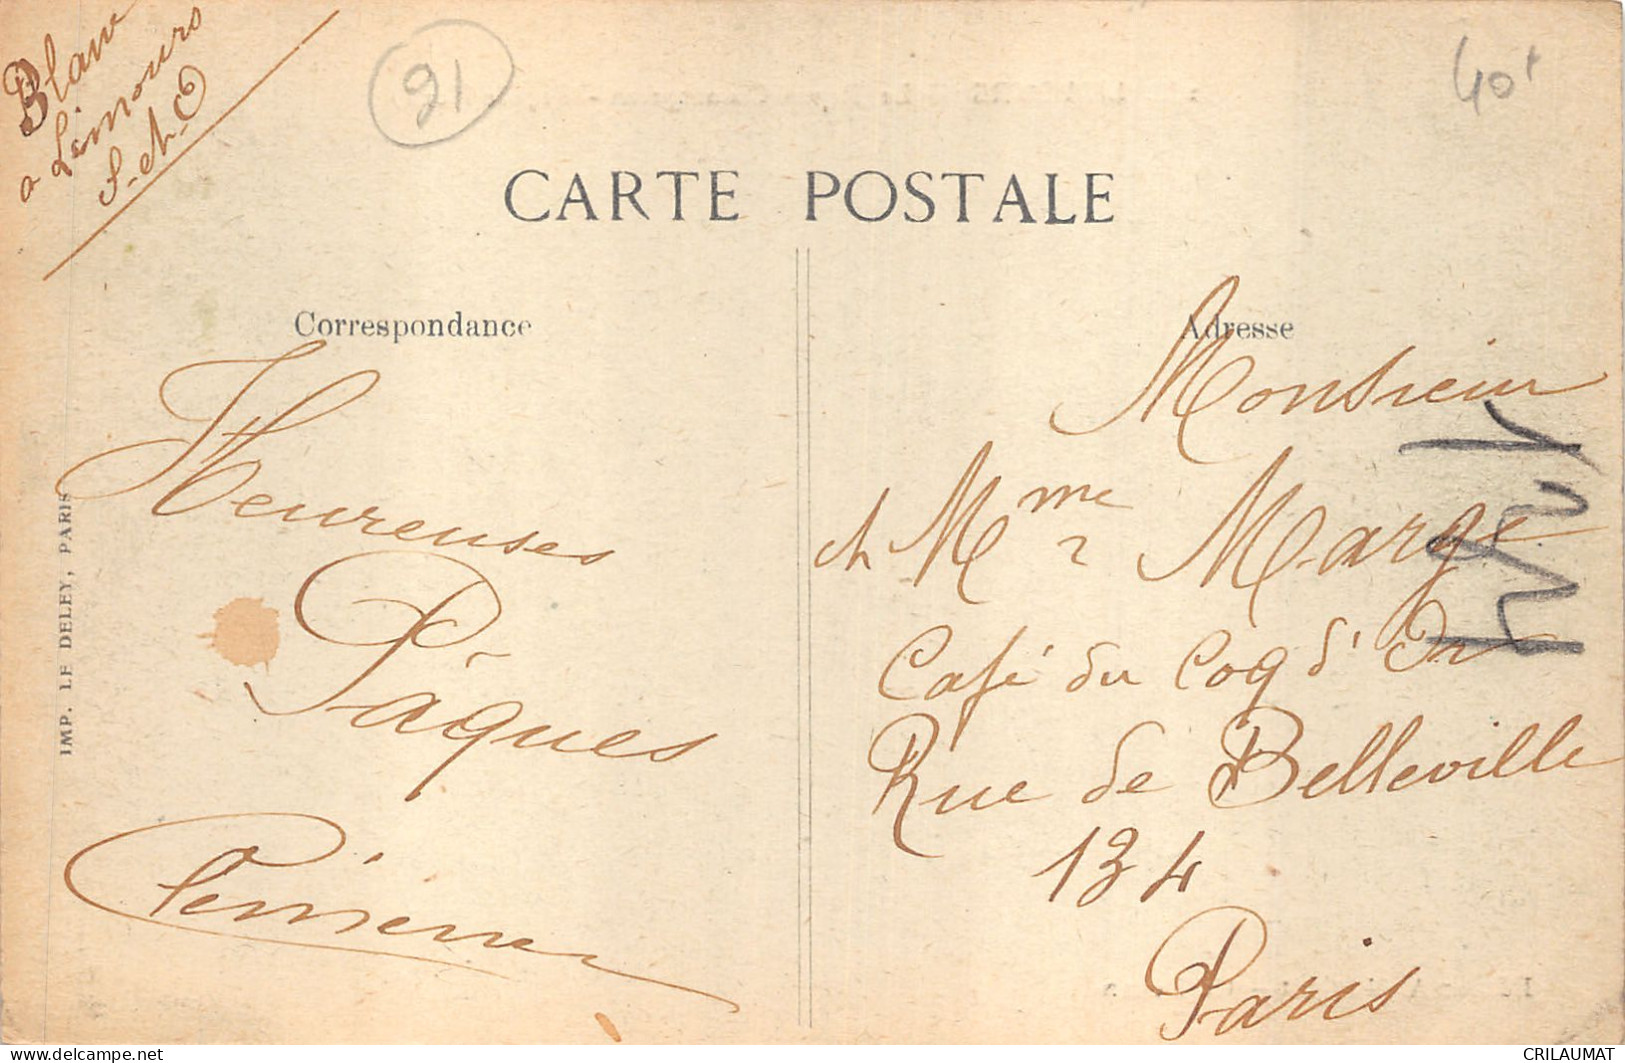 Blaw
a Limours
S-et-O
91
40f
CARTE POSTALE
Correspondance
Heureuses
Pâques
IMP. LE DELEY, PARIS
Adresse
Monsieur
et Mme Marge
Café du Coq d'Or
Rue de Belleville
134
Paris
delcampe.net
CRILAUMAT